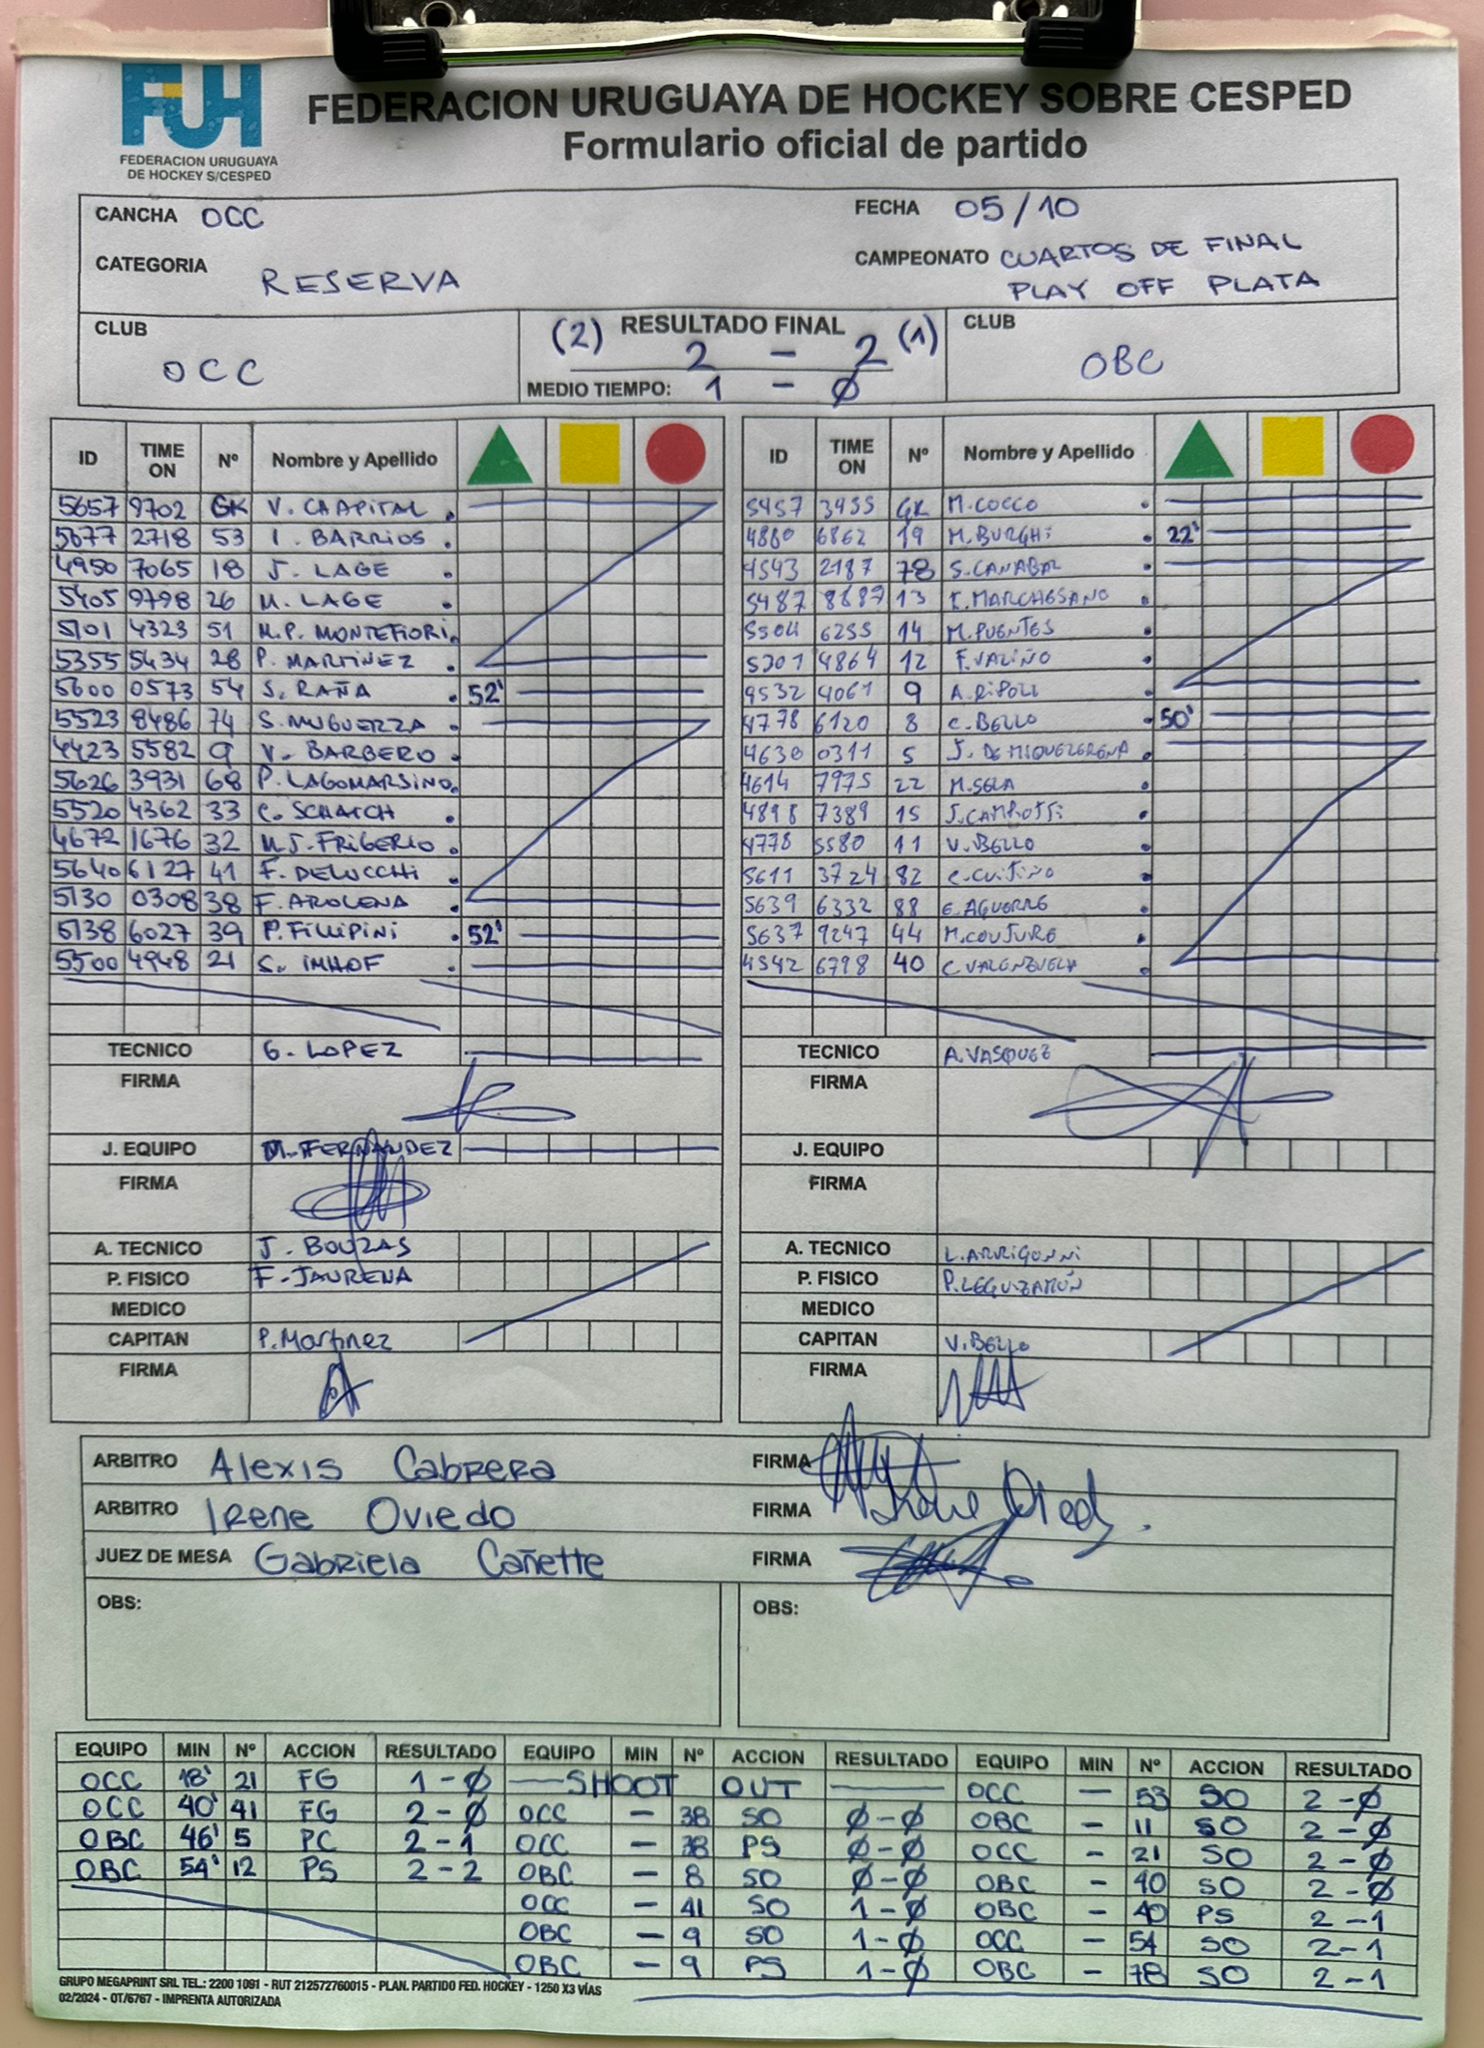 FUH
FEDERACION URUGUAYA
DE HOCKEY S/CESPED
FEDERACION URUGUAYA DE HOCKEY SOBRE CESPED
Formulario oficial de partido
CANCHA OCC FECHA 05/10
CATEGORIA RESERVA CAMPEONATO CUARTOS DE FINAL
PLAY OFF PLATA
CLUB OCC (2) RESULTADO FINAL (1) CLUB OBC
2 - 2
MEDIO TIEMPO: 1 - Ø
ID TIME ON Nº Nombre y Apellido ID TIME ON Nº Nombre y Apellido
5657 9702 GK V. CHAPITAL 5457 3955 GK M. COCCO
5677 2718 53 I. BARRIOS 4880 6862 19 M. BURGHI 22'
4950 7065 18 J. LAGE 4543 2187 78 S. CANABAL
5405 9798 26 M. LAGE 5487 8687 13 MARCHESANO
5101 4323 51 M.P. MONTEFIORI 5504 6255 14 M. PUENTES
5355 5434 28 P. MARTINEZ 5201 4864 12 F. VALIÑO
5600 0573 54 S. RAÑA 52' 9532 4061 9 A. RIPOLL
5523 8486 74 S. MUGUERZA 4778 6120 8 C. BELLO 50'
4423 5582 9 V. BARBERO 4630 0311 5 J. DEMIQUELERENA
5626 3931 68 P. LAGOMARSINO 4614 7975 22 M. SELA
5520 4362 33 C. SCHATCH 4898 7389 15
4672 1676 32 M.J. FRIGERIO 4778 5580 11 V. BELLO
5640 6127 41 F. DELUCCHI 5611 3724 82 C. CUITIÑO
5130 0308 38 F. AROCENA 5639 6332 88 E. AGUERRE
5138 6027 39 P. FILLIPINI 52' 5637 9247 44 M. COUTURE
5500 4948 21 S. IMHOF 4542 6798 40 C. VALENZUELA
TECNICO G. LOPEZ TECNICO A. VASQUEZ
FIRMA FIRMA
J. EQUIPO M. FERNANDEZ J. EQUIPO
FIRMA FIRMA
A. TECNICO J. BOUZAS A. TECNICO L. ARRIGONNI
P. FISICO F. JAURENA P. FISICO P. LEGUIZAMÓN
MEDICO MEDICO
CAPITAN P. Martinez CAPITAN V. BELLO
FIRMA FIRMA
ARBITRO Alexis Cabrera FIRMA
ARBITRO Irene Oviedo FIRMA
JUEZ DE MESA Gabriela Cañette FIRMA
OBS: OBS:
EQUIPO MIN Nº ACCION RESULTADO EQUIPO MIN Nº ACCION RESULTADO EQUIPO MIN Nº ACCION RESULTADO
OCC 18' 21 FG 1-Ø SHOOT OUT OCC - 53 SO 2-Ø
OCC 40' 41 FG 2-Ø OCC - 38 SO Ø-Ø OBC - 11 SO 2-Ø
OBC 46' 5 PC 2-1 OCC - 38 PS Ø-Ø OCC - 21 SO 2-Ø
OBC 54' 12 PS 2-2 OBC - 8 SO Ø-Ø OBC - 40 SO 2-Ø
OCC - 41 SO 1-Ø OBC - 40 PS 2-1
OBC - 9 SO 1-Ø OCC - 54 SO 2-1
OBC - 9 PS 1-Ø OBC - 78 SO 2-1
GRUPO MEGAPRINT SRL TEL.: 2200 1091 - RUT 212572760015 - PLAN. PARTIDO FED. HOCKEY - 1250 X3 VÍAS
02/2024 - OT/6767 - IMPRENTA AUTORIZADA